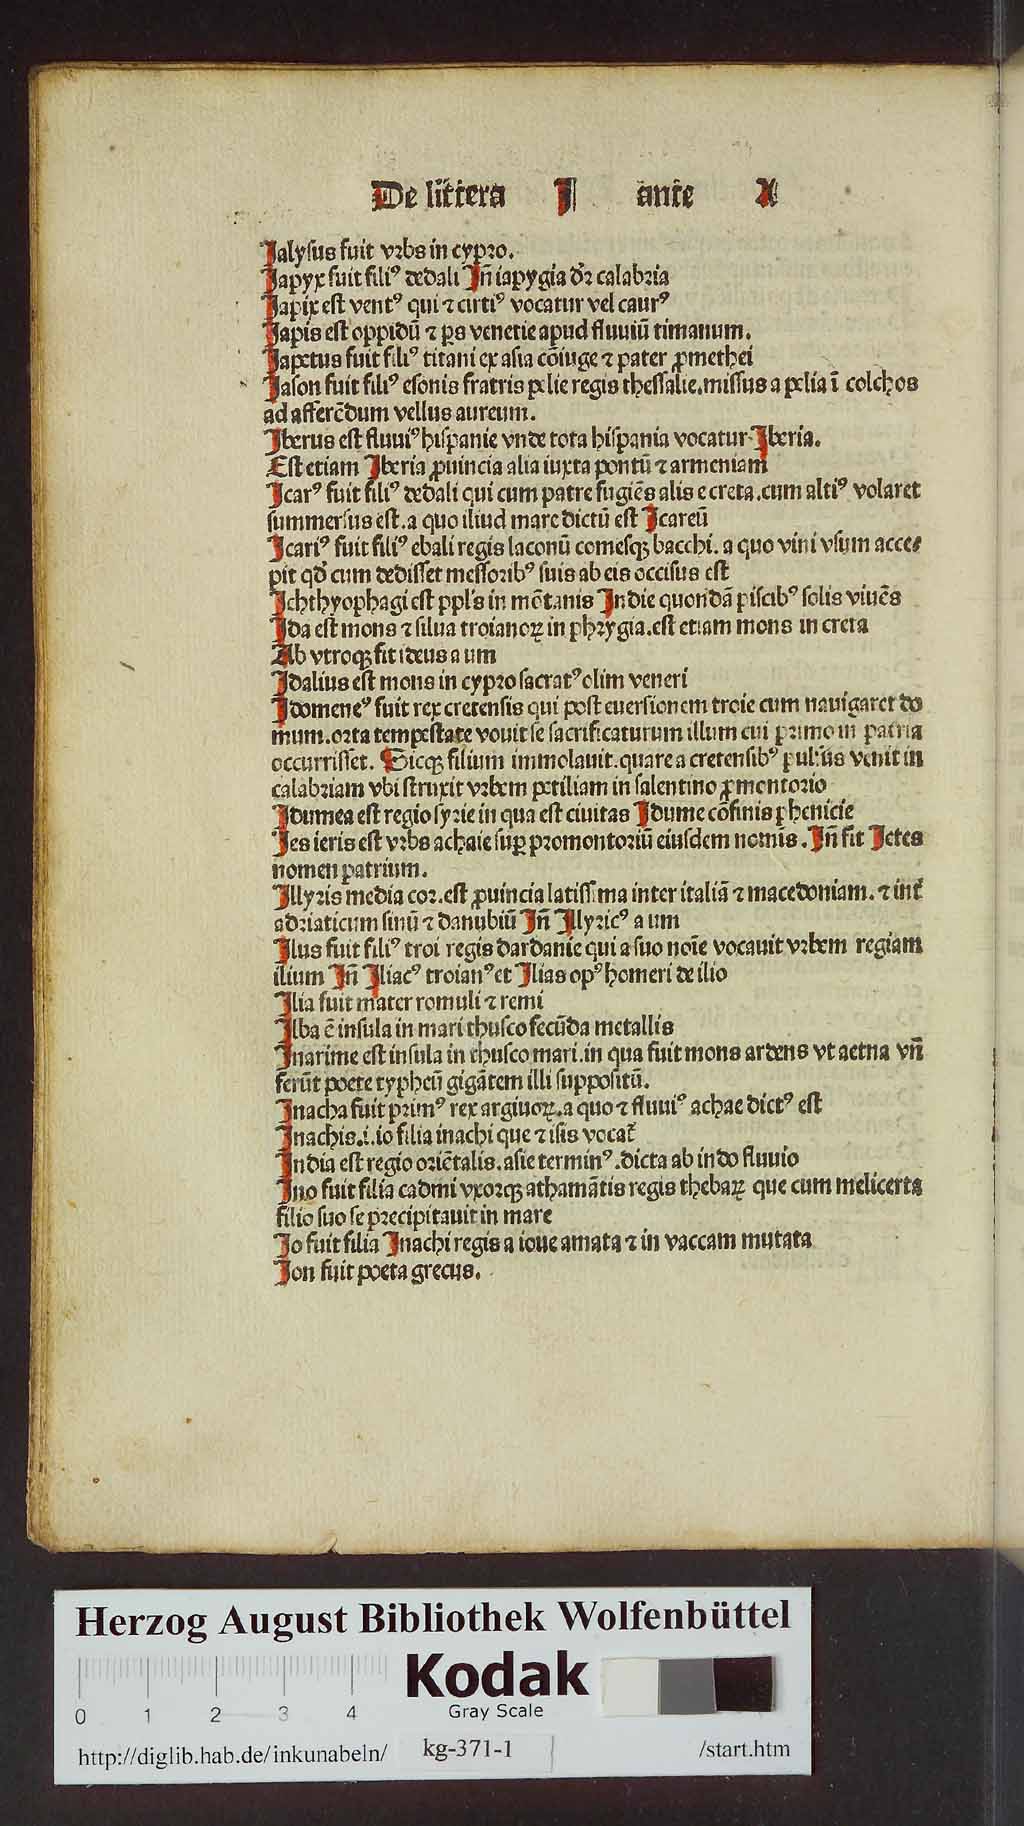 De littera I ante A
Ialysus fuit vrbs in cypro.
Iapyx fuit filiꝰ dedali Iñ iapygia dr̄ calabria
Iapix est ventꝰ qui ⁊ cirtiꝰ vocatur vel caurꝰ
Iapis est oppidū ⁊ ps venetie apud fluuiū timanum.
Iapetus fuit filiꝰ titani ex asia cōiuge ⁊ pater ꝓmethei
Iason fuit filiꝰ esonis fratris pelie regis thessalie.missus a pelia ī colchos
ad afferēdum vellus aureum.
Iberus est fluuiꝰ hispanie vnde tota hispania vocatur Iberia.
Est etiam Iberia ꝓuincia alia iuxta pontū ⁊ armeniam
Icarꝰ fuit filiꝰ dedali qui cum patre fugiēs alis e creta.cum altiꝰ volaret
summersus est.a quo illud mare dictū est Icareū
Icariꝰ fuit filiꝰ ebali regis laconū comesqꝫ bacchi. a quo vini vsum acce⸗
pit qđ cum dedisset messoribꝰ suis ab eis occisus est
Ichthyophagi est ppl's in mōtanis Indie quondā piscibꝰ solis viuēs
Ida est mons ⁊ silua troianoꝝ in phrygia.est etiam mons in creta
Ab vtroqꝫ fit ideus a um
Idalius est mons in cypro sacratꝰ olim veneri
Idomeneꝰ fuit rex cretensis qui post euersionem troie cum nauigaret do
mum.orta tempestate vouit se sacrificaturum illum cui primo in patria
occurrisset. Sicqꝫ filium immolauit.quare a cretensibꝰ pulsus venit in
calabriam vbi struxit vrbem petiliam in salentino ꝓmontorio
Idumea est regio syrie in qua est ciuitas Idume cōfinis phenicie
Ies ieris est vrbs achaie suꝑ promontoriū eiusdem nomīs. Iñ fit Ietes
nomen patrium.
Illyris media cor.est ꝓuincia latissima inter italiā ⁊ macedoniam. ⁊ int̄
adriaticum sinū ⁊ danubiū Iñ Illyricꝰ a um
Ilus fuit filiꝰ troi regis dardanie qui a suo noīe vocauit vrbem regiam
ilium Iñ Iliacꝰ troianꝰ et Ilias opꝰ homeri de ilio
Ilia fuit mater romuli ⁊ remi
Ilba ē insula in mari thusco fecūda metallis
Inarime est insula in thusco mari.in qua fuit mons ardens vt aetna vñ
ferūt poete typheū gigātem illi suppositū.
Inacha fuit primꝰ rex argiuoꝝ.a quo ⁊ fluuiꝰ achae dictꝰ est
Inachis.i.io filia inachi que ⁊ isis vocat̄
India est regio oriētalis.asie terminꝰ.dicta ab indo fluuio
Ino fuit filia cadmi vxorqꝫ athamātis regis thebaꝝ que cum melicerta
filio suo se precipitauit in mare
Io fuit filia Inachi regis a ioue amata ⁊ in vaccam mutata
Ion fuit poeta grecus.
Herzog August Bibliothek Wolfenbüttel
Kodak
Gray Scale
0 1 2 3 4
http://diglib.hab.de/inkunabeln/ kg-371-1 /start.htm